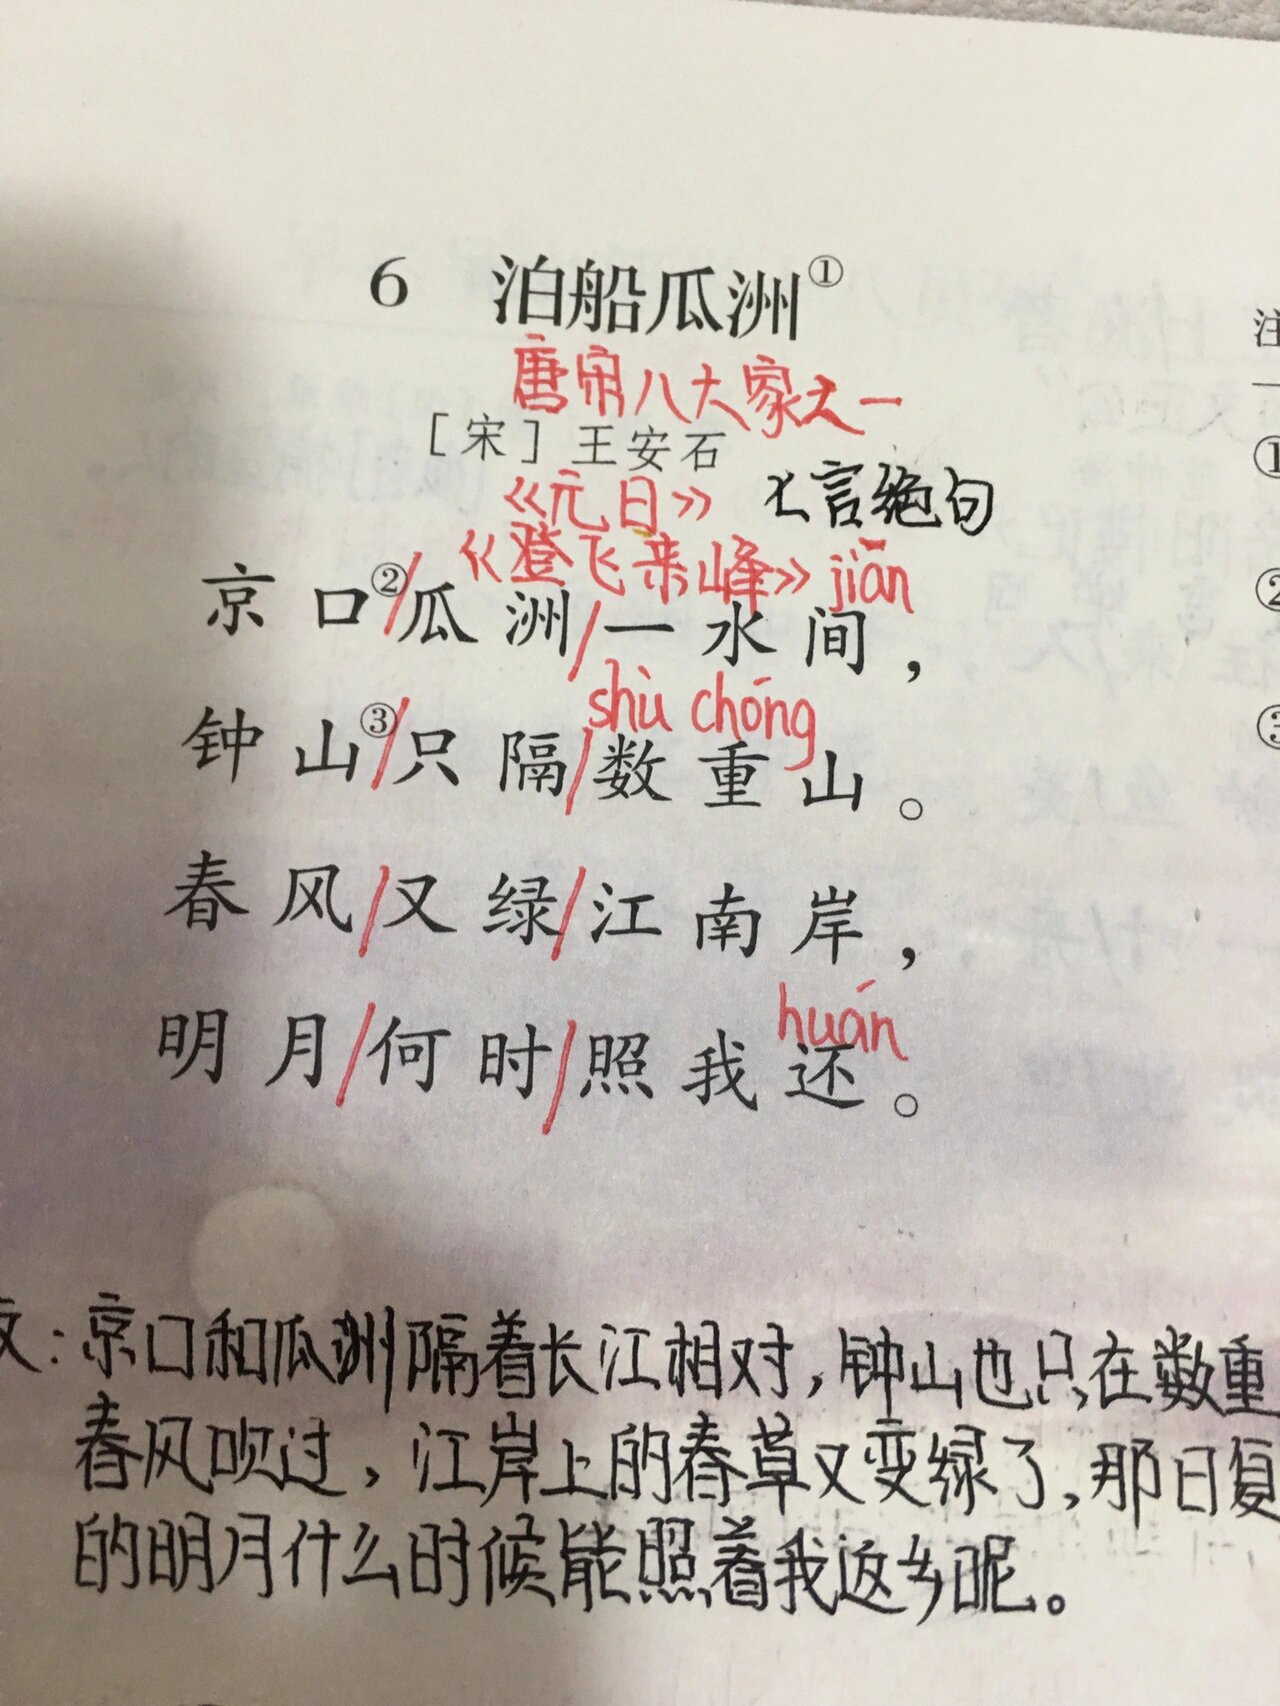 6 泊船瓜洲①
注
唐宋八大家之一
[宋] 王安石
①
《元日》 七言绝句
《登飞来峰》 jiān
②
京口②/瓜洲/一水间，
shù chóng
③
钟山③/只隔/数重山。
春风/又绿/江南岸，
huán
明月/何时/照我还。
文：京口和瓜洲隔着长江相对，钟山也只在数重
春风吹过，江岸上的春草又变绿了，那日复
的明月什么时候能照着我返乡呢。